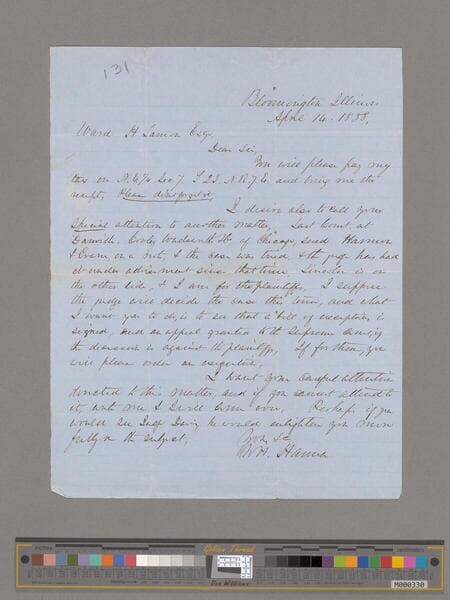 131
Bloomington Illinois
April 14. 1858,
Ward H Lamon Esq,
Dear Sir,
You will please pay my
tax on N.E.¼ Sec 7. T 23. N R. 7 E. and bring me the
receipt, Please dont forget it
I desire also to call your
Special attention to another matter, Last Court, at
Danville, Cooley Wadsworth &Co of Chicago, sued Harmon
& on a note, & the case was tried & the judge has had
it under advisement since that time, Lincoln is on
the other side, & I am for the plaintiffs, I suppose
the judge will decide the case this time, and what
I want you to do, is to see that a bill of exceptions is
signed, and an appeal granted to the Supreme Court, if
the decision is against the plaintiffs, If for them, you
will please order an execution,
I want your careful attention
directed to this matter, and if you cannot attend to
it, write me & I will come over, Perhaps if you
would see Judge Davis, he would enlighten you more
fully on the subject,
Yrs &c
Wm. H. Hanna
inches
Golden Thread
centimeters
M000330